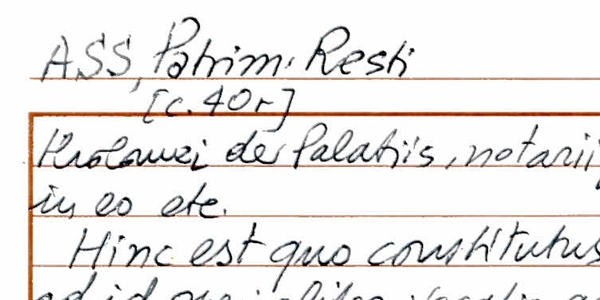 ASS, Patrim. Resti
[c. 40r]
de Palatiis, notarii
in eo etc.
Hinc est quo constitutus
ad id